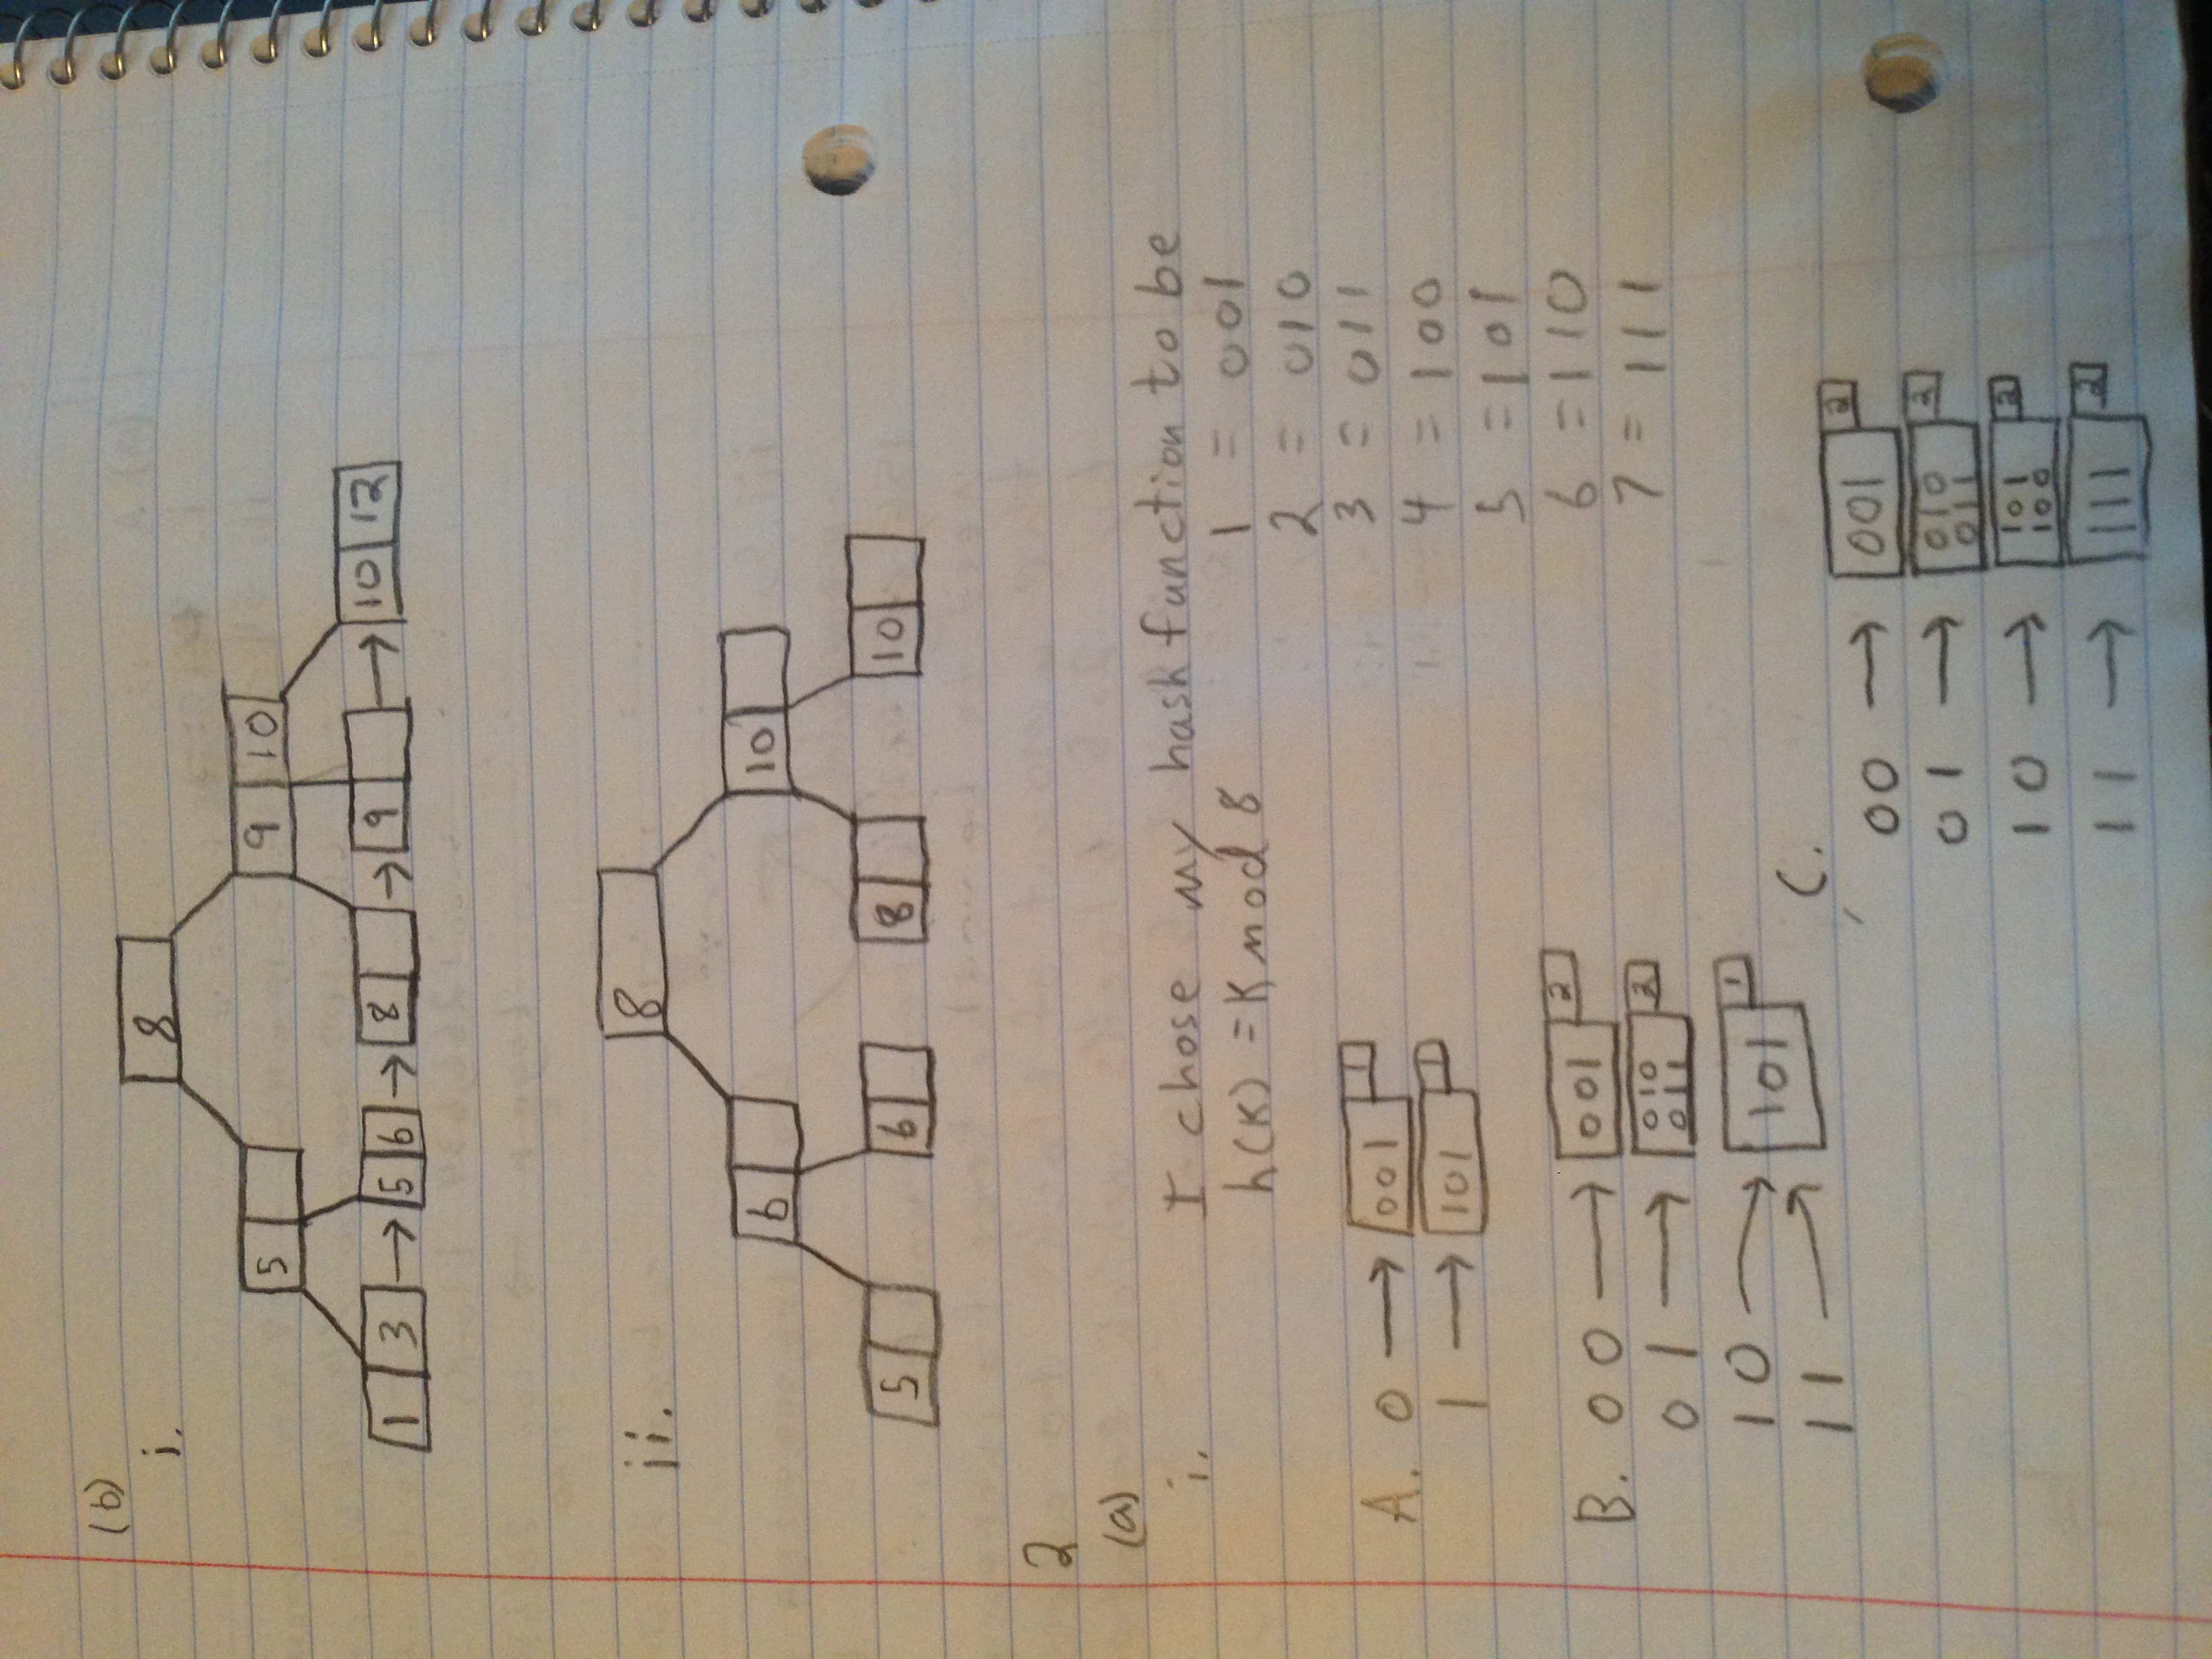 (b)
i.
8
5 9 10
1 3 → 5 6 → 8 → 9 → 10 12
ii.
8
6 10
5 6 8 10
2
(a)
i. I chose my hash function to be
h(K) = K mod 8
1 = 001
2 = 010
3 = 011
4 = 100
5 = 101
6 = 110
7 = 111
A. 0 → 001 1
1 → 101 1
B. 00 → 001 2
01 → 010 2
011
10 → 101 1
11 →
C.
00 → 001 2
01 → 010 2
011
10 → 101 2
100
11 → 111 2